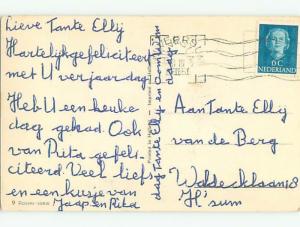 Lieve Tante Elly
Hartelijkgefeliciteert
met U verjaardag
Heb U een leuke
dag gehad. Ook
van Rita gefeli-
citeerd. Veel liefs
en een kusje van
Jaap en Rita
dag Tante Elly en Om
dag.
Aan Tante Elly
van de Berg
Waldecklaan 18
H'sum
NEDERLAND